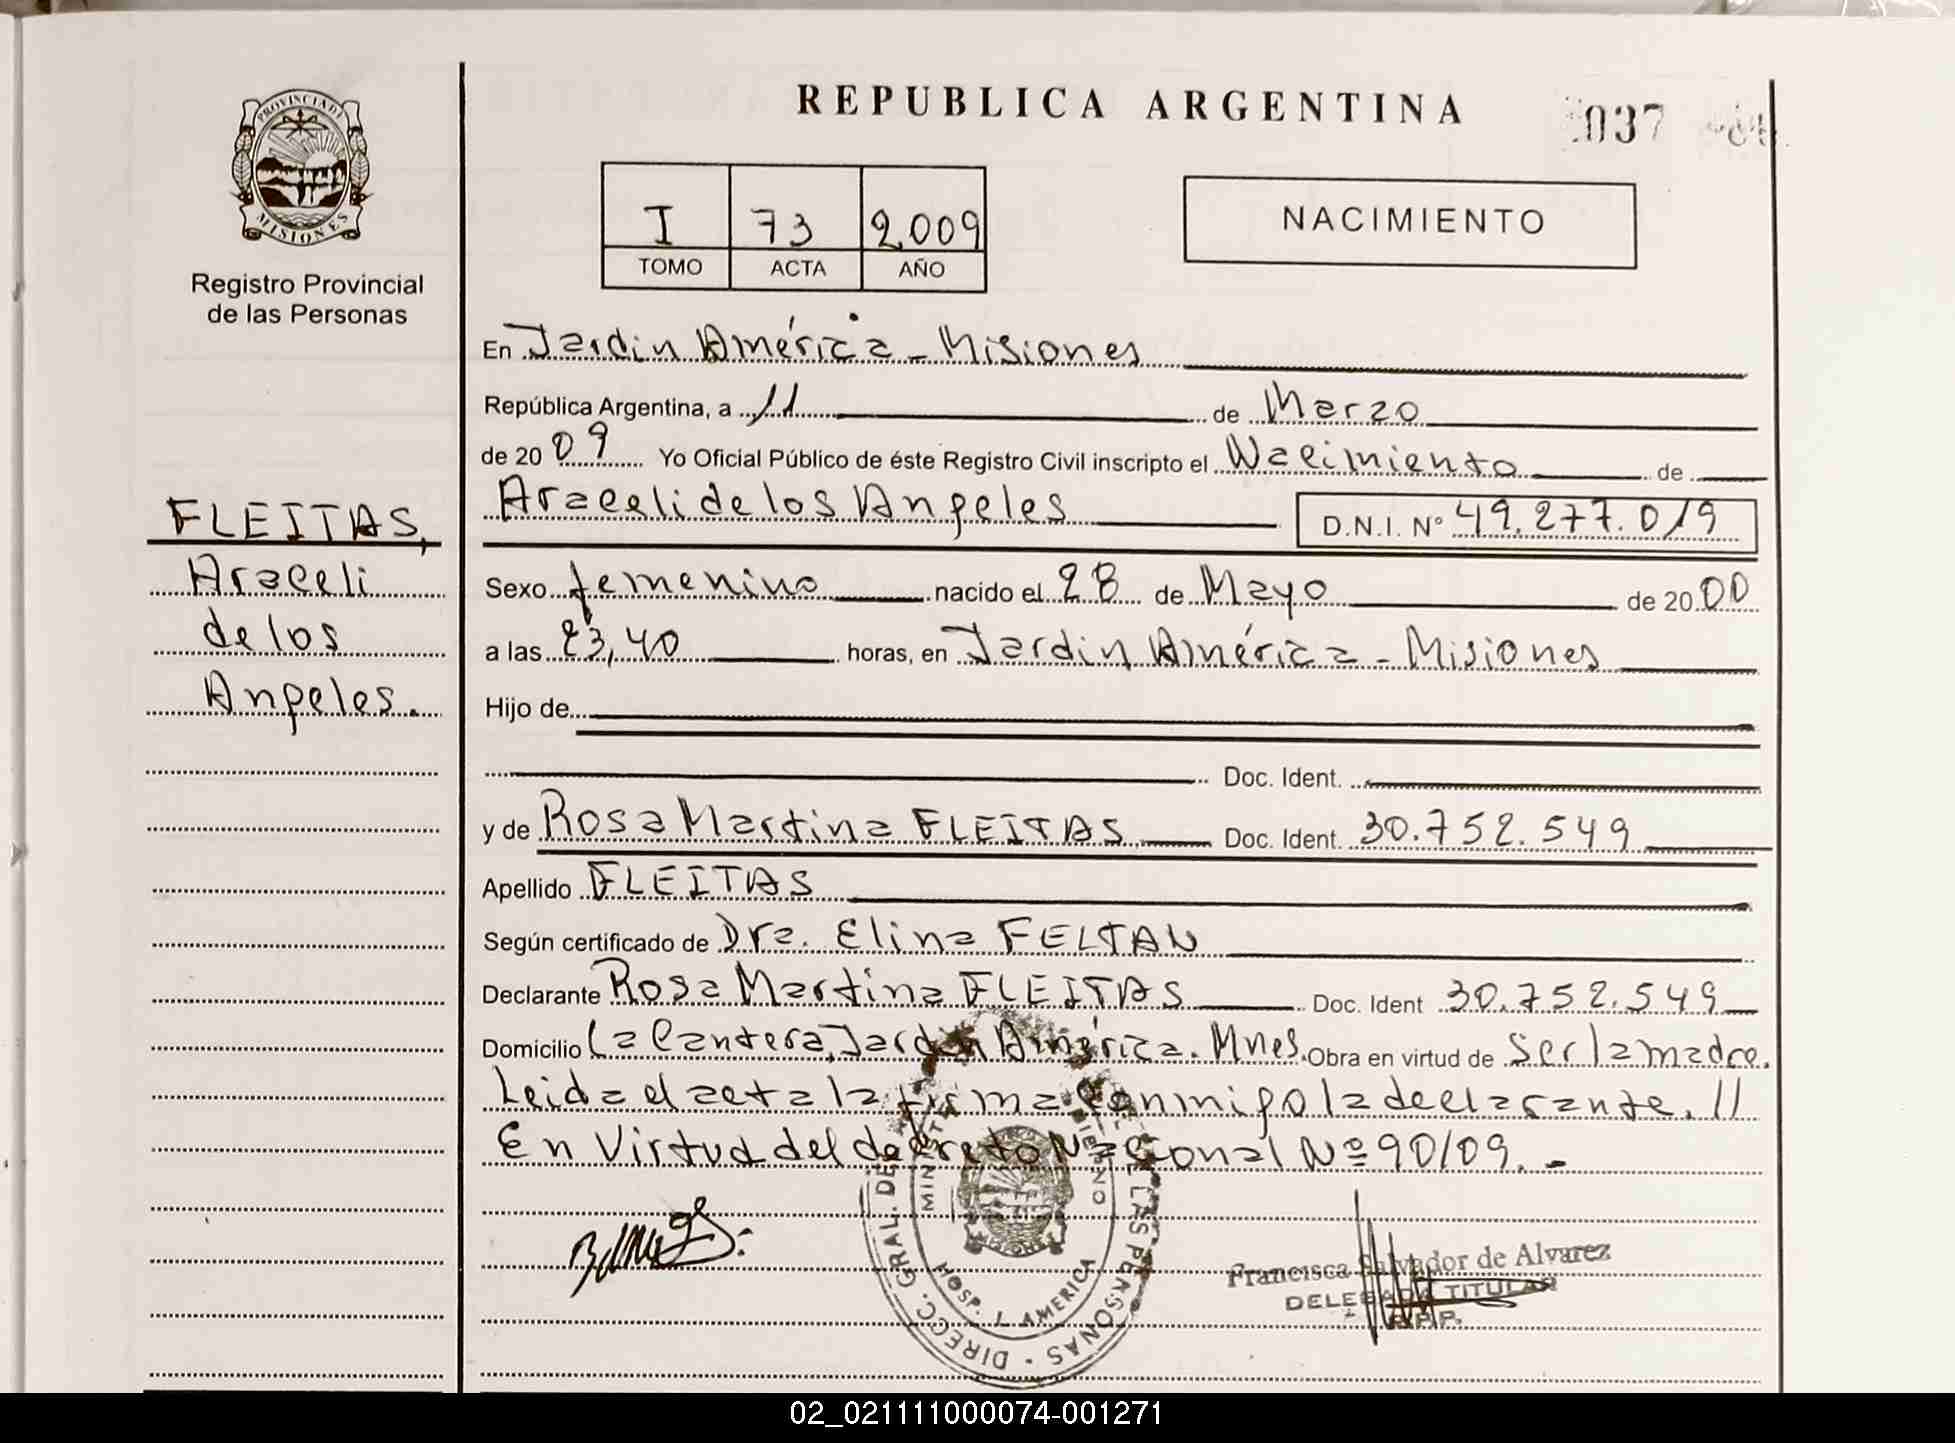 REPUBLICA ARGENTINA
037
PROVINCIA DE
MISIONES
Registro Provincial
de las Personas
I 73 2.009
TOMO ACTA AÑO
NACIMIENTO
En Jardin América - Misiones
República Argentina, a 11 de Marzo
de 2009 Yo Oficial Público de éste Registro Civil inscripto el Nacimiento de
Araceli de los Angeles D.N.I. N° 49.277.019
FLEITAS,
Araceli
de los
Angeles.
Sexo femenino nacido el 28 de Mayo de 2000
a las 23,40 horas, en Jardin América - Misiones
Hijo de
Doc. Ident.
y de Rosa Martina FLEITAS Doc. Ident. 30.752.549
Apellido FLEITAS
Según certificado de Dra. Elina FELTAN
Declarante Rosa Martina FLEITAS Doc. Ident 30.752.549
Domicilio La Cantera, Jardin América. Mnes. Obra en virtud de Ser la madre.
Leida el acta la firma conmigo la declarante. //
En Virtud del decreto Nacional Nº 90/09. -
DIRECC. GRAL. DE LAS PERSONAS
HOSP. J. AMERICA
Francisca Salvador de Alvarez
DELEGADA TITULAR
R.P.P.
02_021111000074-001271